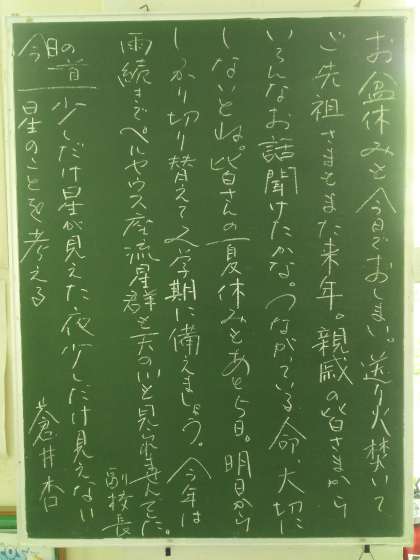 お盆休みも今日でおしまい。送り火焚いて
ご先祖さまもまた来年。親戚の皆さまから
いろんなお話聞けたかな。つながっている命、大切に
しないとね。皆さんの夏休みもあと5日。明日から
しっかり切り替えて2学期に備えましょう。今年は
雨続きでペルセウス座流星群も天の川も見られませんでした。
副校長
今日の一首
少しだけ星が見えた夜少しだけ見えない
星のことを考える
蒼井杏